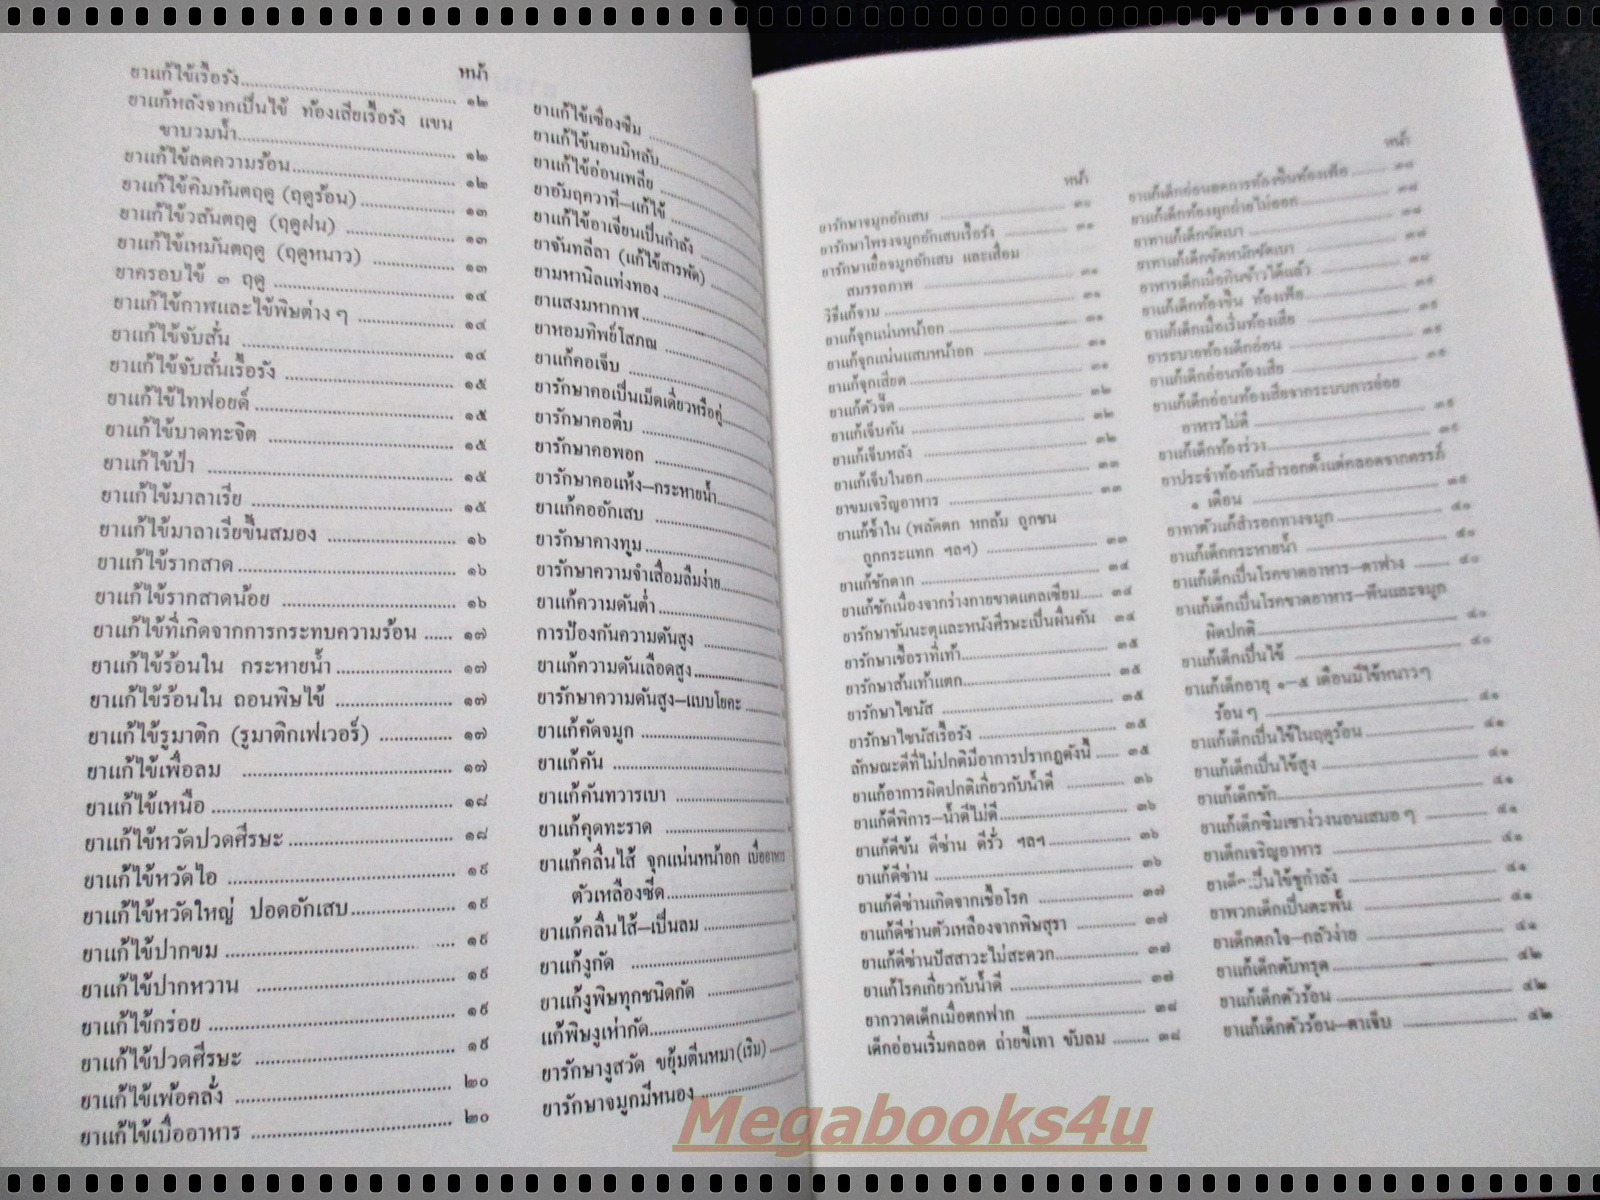 หน้า
ยาแก้ไข้เรื้อรัง ๑๒
ยาแก้หลังจากเป็นไข้ ท้องเสียเรื้อรัง แขน
ขาบวมน้ำ ๑๒
ยาแก้ไข้ลดความร้อน ๑๒
ยาแก้ไข้คิมหันตฤดู (ฤดูร้อน) ๑๓
ยาแก้ไข้วสันตฤดู (ฤดูฝน) ๑๓
ยาแก้ไข้เหมันตฤดู (ฤดูหนาว) ๑๓
ยาครอบไข้ ๓ ฤดู ๑๔
ยาแก้ไข้กาฬและไข้พิษต่าง ๆ ๑๔
ยาแก้ไข้จับสั่น ๑๔
ยาแก้ไข้จับสั่นเรื้อรัง ๑๕
ยาแก้ไข้ไทฟอยด์ ๑๕
ยาแก้ไข้บาดทะจิต ๑๕
ยาแก้ไข้ป่า ๑๕
ยาแก้ไข้มาลาเรีย ๑๕
ยาแก้ไข้มาลาเรียขึ้นสมอง ๑๖
ยาแก้ไข้รากสาด ๑๖
ยาแก้ไข้รากสาดน้อย ๑๖
ยาแก้ไข้ที่เกิดจากการกระทบความร้อน ๑๗
ยาแก้ไข้ร้อนใน กระหายน้ำ ๑๗
ยาแก้ไข้ร้อนใน ถอนพิษไข้ ๑๗
ยาแก้ไข้รูมาติก (รูมาติกเฟเวอร์) ๑๗
ยาแก้ไข้เพื่อลม ๑๗
ยาแก้ไข้เหนือ ๑๘
ยาแก้ไข้หวัดปวดศีรษะ ๑๘
ยาแก้ไข้หวัดไอ ๑๙
ยาแก้ไข้หวัดใหญ่ ปอดอักเสบ ๑๙
ยาแก้ไข้ปากขม ๑๙
ยาแก้ไข้ปากหวาน ๑๙
ยาแก้ไข้กร่อย ๑๙
ยาแก้ไข้ปวดศีรษะ ๑๙
ยาแก้ไข้เพ้อคลั่ง ๒๐
ยาแก้ไข้เบื่ออาหาร ๒๐
ยาแก้ไข้เซื่องซึม
ยาแก้ไข้นอนมิหลับ
ยาแก้ไข้อ่อนเพลีย
ยาอัมฤควาที–แก้ไข้
ยาแก้ไข้อาเจียนเป็นกำลัง
ยาจันทลีลา (แก้ไข้สารพัด)
ยามหานิลแท่งทอง
ยาแสงมหากาฬ
ยาหอมทิพย์โสภณ
ยาแก้คอเจ็บ
ยารักษาคอเป็นเม็ดเดี่ยวหรือคู่
ยารักษาคอตีบ
ยารักษาคอพอก
ยารักษาคอแห้ง–กระหายน้ำ
ยาแก้คออักเสบ
ยารักษาคางทูม
ยารักษาความจำเสื่อมลืมง่าย
ยาแก้ความดันต่ำ
การป้องกันความดันสูง
ยาแก้ความดันเลือดสูง
ยารักษาความดันสูง–แบบโยคะ
ยาแก้คัดจมูก
ยาแก้คัน
ยาแก้คันทวารเบา
ยาแก้คุดทะราด
ยาแก้คลื่นไส้ จุกแน่นหน้าอก เบื่ออาหาร
ตัวเหลืองซีด
ยาแก้คลื่นไส้–เป็นลม
ยาแก้งูกัด
ยาแก้งูพิษทุกชนิดกัด
แก้พิษงูเห่ากัด
ยารักษางูสวัด ขยุ้มตีนหมา(เริม)
ยารักษาจมูกมีหนอง
หน้า
ยารักษาจมูกอักเสบ ๓๐
ยารักษาโพรงจมูกอักเสบเรื้อรัง ๓๑
ยารักษาเยื่อจมูกอักเสบ และเสื่อม
สมรรถภาพ ๓๑
วิธีแก้จาม ๓๑
ยาแก้จุกแน่นหน้าอก ๓๑
ยาแก้จุกแน่นแสบหน้าอก ๓๑
ยาแก้จุกเสียด ๓๑
ยาแก้ตัวจี๊ด ๓๒
ยาแก้เจ็บคัน ๓๒
ยาแก้เจ็บหลัง ๓๒
ยาแก้เจ็บในอก ๓๓
ยาขมเจริญอาหาร ๓๓
ยาแก้ช้ำใน (พลัดตก หกล้ม ถูกชน
ถูกกระแทก ฯลฯ) ๓๓
ยาแก้ชักตาก ๓๔
ยาแก้ชักเนื่องจากร่างกายขาดแคลเซียม ๓๔
ยารักษาชันนะตุและหนังศีรษะเป็นผื่นคัน ๓๔
ยารักษาเชื้อราที่เท้า ๓๕
ยารักษาส้นเท้าแตก ๓๕
ยารักษาไซนัส ๓๕
ยารักษาไซนัสเรื้อรัง ๓๕
ลักษณะดีที่ไม่ปกติมีอาการปรากฏดังนี้ ๓๕
ยาแก้อาการผิดปกติเกี่ยวกับน้ำดี ๓๖
ยาแก้ดีพิการ–น้ำดีไม่ดี ๓๖
ยาแก้ดีข้น ดีซ่าน ดีรั่ว ฯลฯ ๓๖
ยาแก้ดีซ่าน ๓๖
ยาแก้ดีซ่านเกิดจากเชื้อโรค ๓๗
ยาแก้ดีซ่านตัวเหลืองจากพิษสุรา ๓๗
ยาแก้ดีซ่านปัสสาวะไม่สะดวก ๓๗
ยาแก้โรคเกี่ยวกับน้ำดี ๓๗
ยากวาดเด็กเมื่อตกฟาก ๓๘
เด็กอ่อนเริ่มคลอด ถ่ายขี้เทา ขับลม ๓๘
หน้า
ยาแก้เด็กอ่อนลดการท้องขึ้นท้องเฟ้อ ๓๘
ยาแก้เด็กท้องผูกถ่ายไม่ออก ๓๘
ยาทาแก้เด็กขัดเบา ๓๘
ยาทาแก้เด็กขัดหนักขัดเบา ๓๘
อาหารเด็กเมื่อกินข้าวได้แล้ว ๓๘
ยาแก้เด็กท้องขึ้น ท้องเฟ้อ ๓๙
ยาแก้เด็กเมื่อเริ่มท้องเสีย ๓๙
ยาระบายท้องเด็กอ่อน ๓๙
ยาแก้เด็กอ่อนท้องเสีย ๓๙
ยาแก้เด็กอ่อนท้องเสียจากระบบการย่อย
อาหารไม่ดี ๓๙
ยาแก้เด็กท้องร่วง ๓๙
ยาประจำท้องกันสำรอกตั้งแต่คลอดจากครรภ์
๑ เดือน ๓๙
ยาทาตัวแก้สำรอกทางจมูก ๔๐
ยาแก้เด็กกระหายน้ำ ๔๐
ยาแก้เด็กเป็นโรคขาดอาหาร–ตาฟาง ๔๐
ยาแก้เด็กเป็นโรคขาดอาหาร–ฟันและจมูก
ผิดปกติ ๔๐
ยาแก้เด็กเป็นไข้ ๔๐
ยาแก้เด็กอายุ ๑–๕ เดือนมีไข้หนาวๆ
ร้อน ๆ ๔๑
ยาแก้เด็กเป็นไข้ในฤดูร้อน ๔๑
ยาแก้เด็กเป็นไข้สูง ๔๑
ยาแก้เด็กชัก ๔๑
ยาแก้เด็กซึมเซาง่วงนอนเสมอ ๆ ๔๑
ยาเด็กเจริญอาหาร ๔๑
ยาเด็กเป็นไข้ชูกำลัง ๔๑
ยาพวกเด็กเป็นตะพั้น ๔๑
ยาเด็กตกใจ–กลัวง่าย ๔๑
ยาแก้เด็กตับทรุด ๔๒
ยาแก้เด็กตัวร้อน ๔๒
ยาแก้เด็กตัวร้อน–ตาเจ็บ ๔๒
Megabooks4u